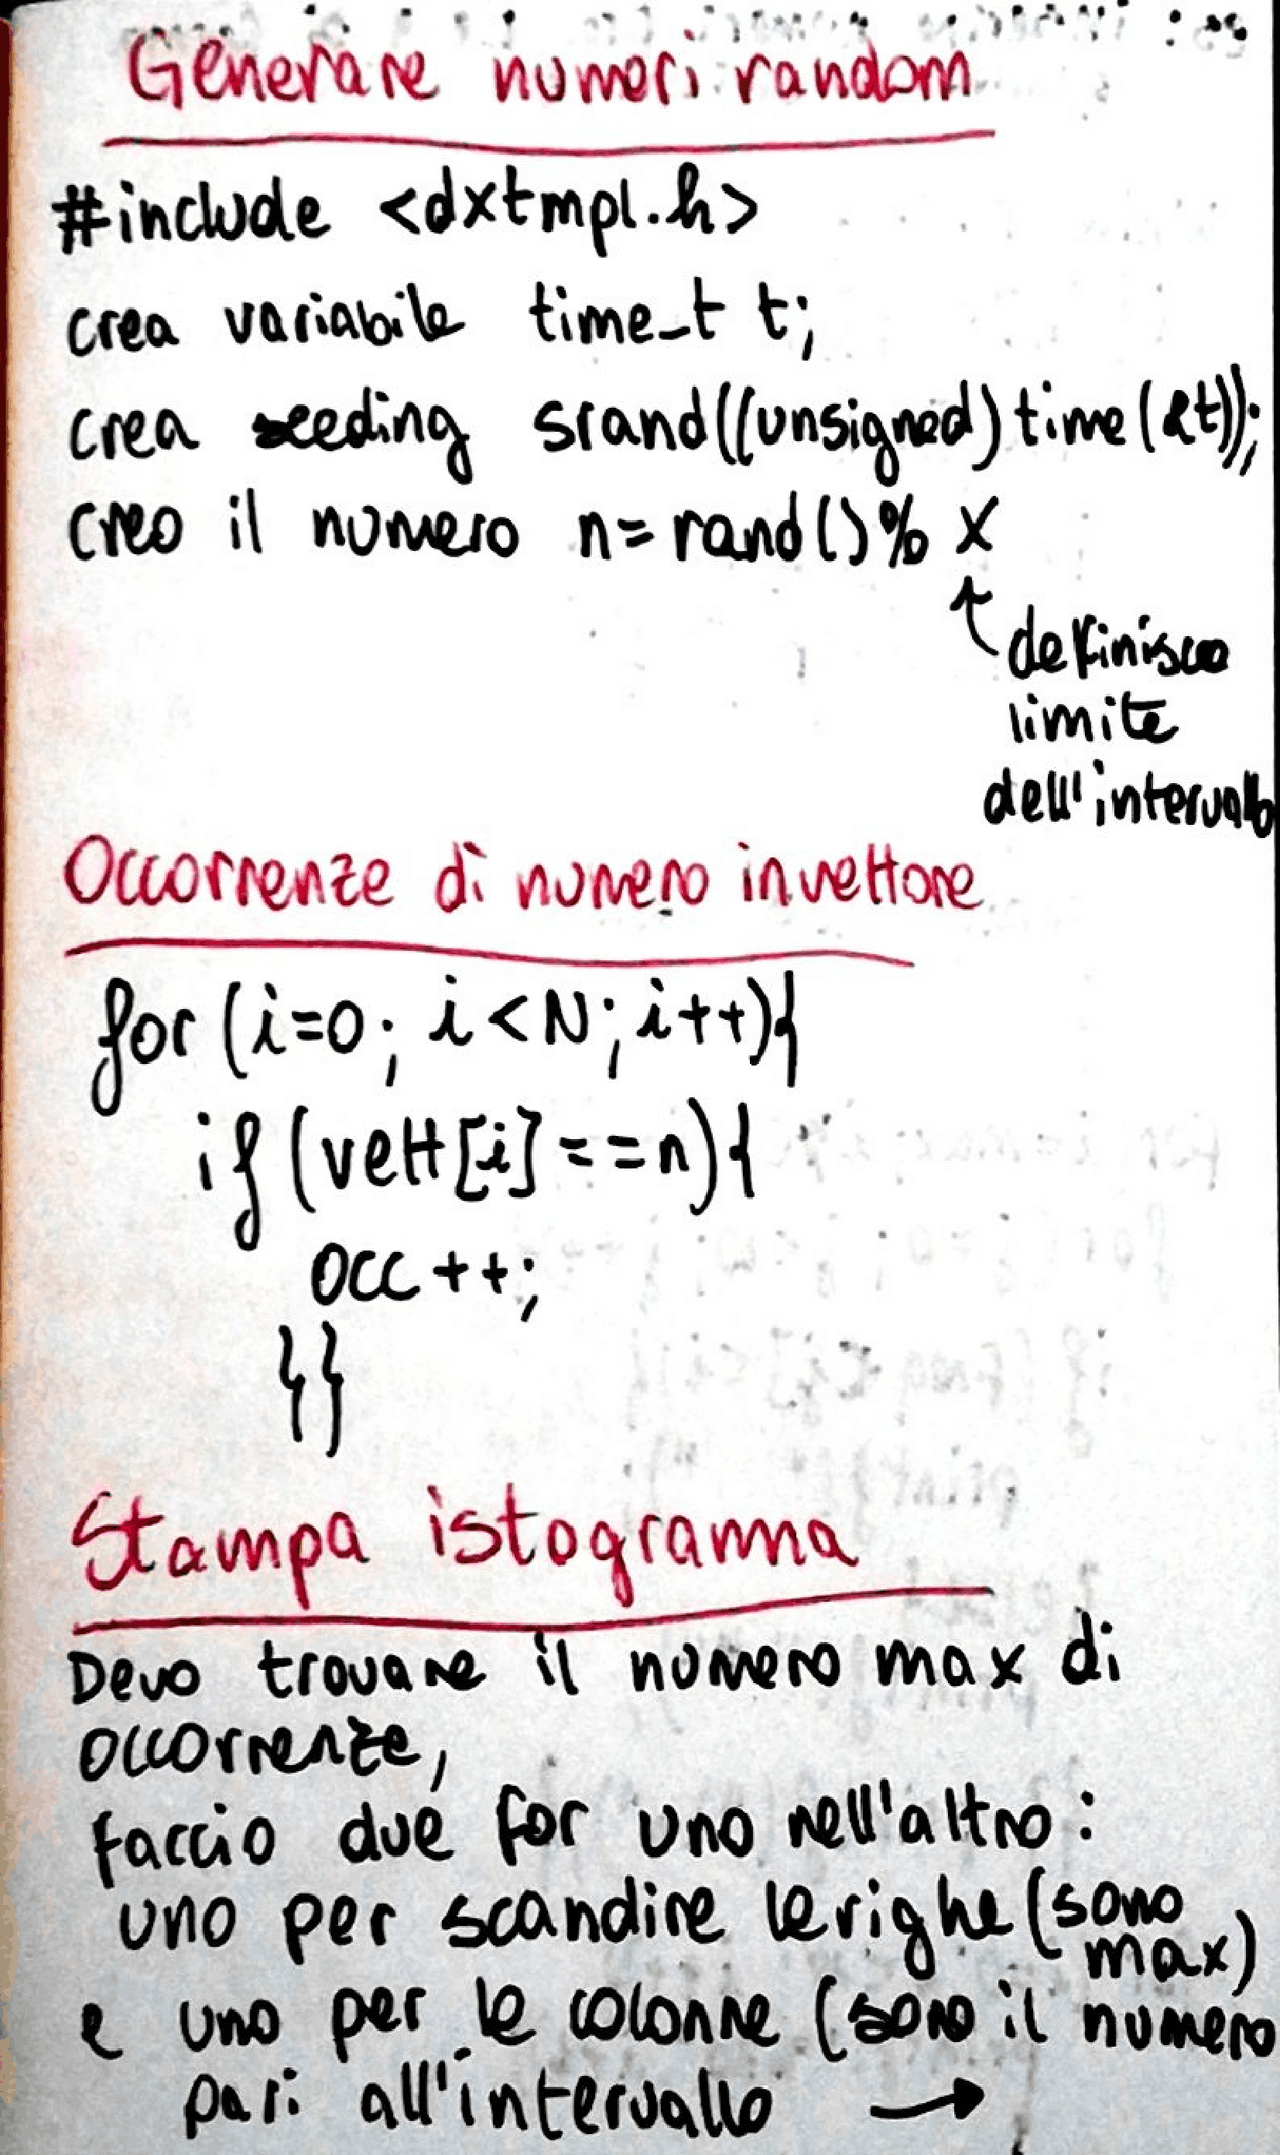 Generare numeri random
#include <dxtmpl.h>
crea variabile time_t t;
crea seeding srand((unsigned)time(&t));
creo il numero n=rand()% X
definisco
limite
dell'intervallo
Occorrenze di numero in vettore
for (i=0; i<N; i++){
if (vett[i]==n){
occ++;
}}
Stampa istogramma
Devo trovare il numero max di
occorrenze,
faccio due for uno nell'altro:
uno per scandire le righe (sono
max)
e uno per le colonne (sono il numero
pari all'intervallo →